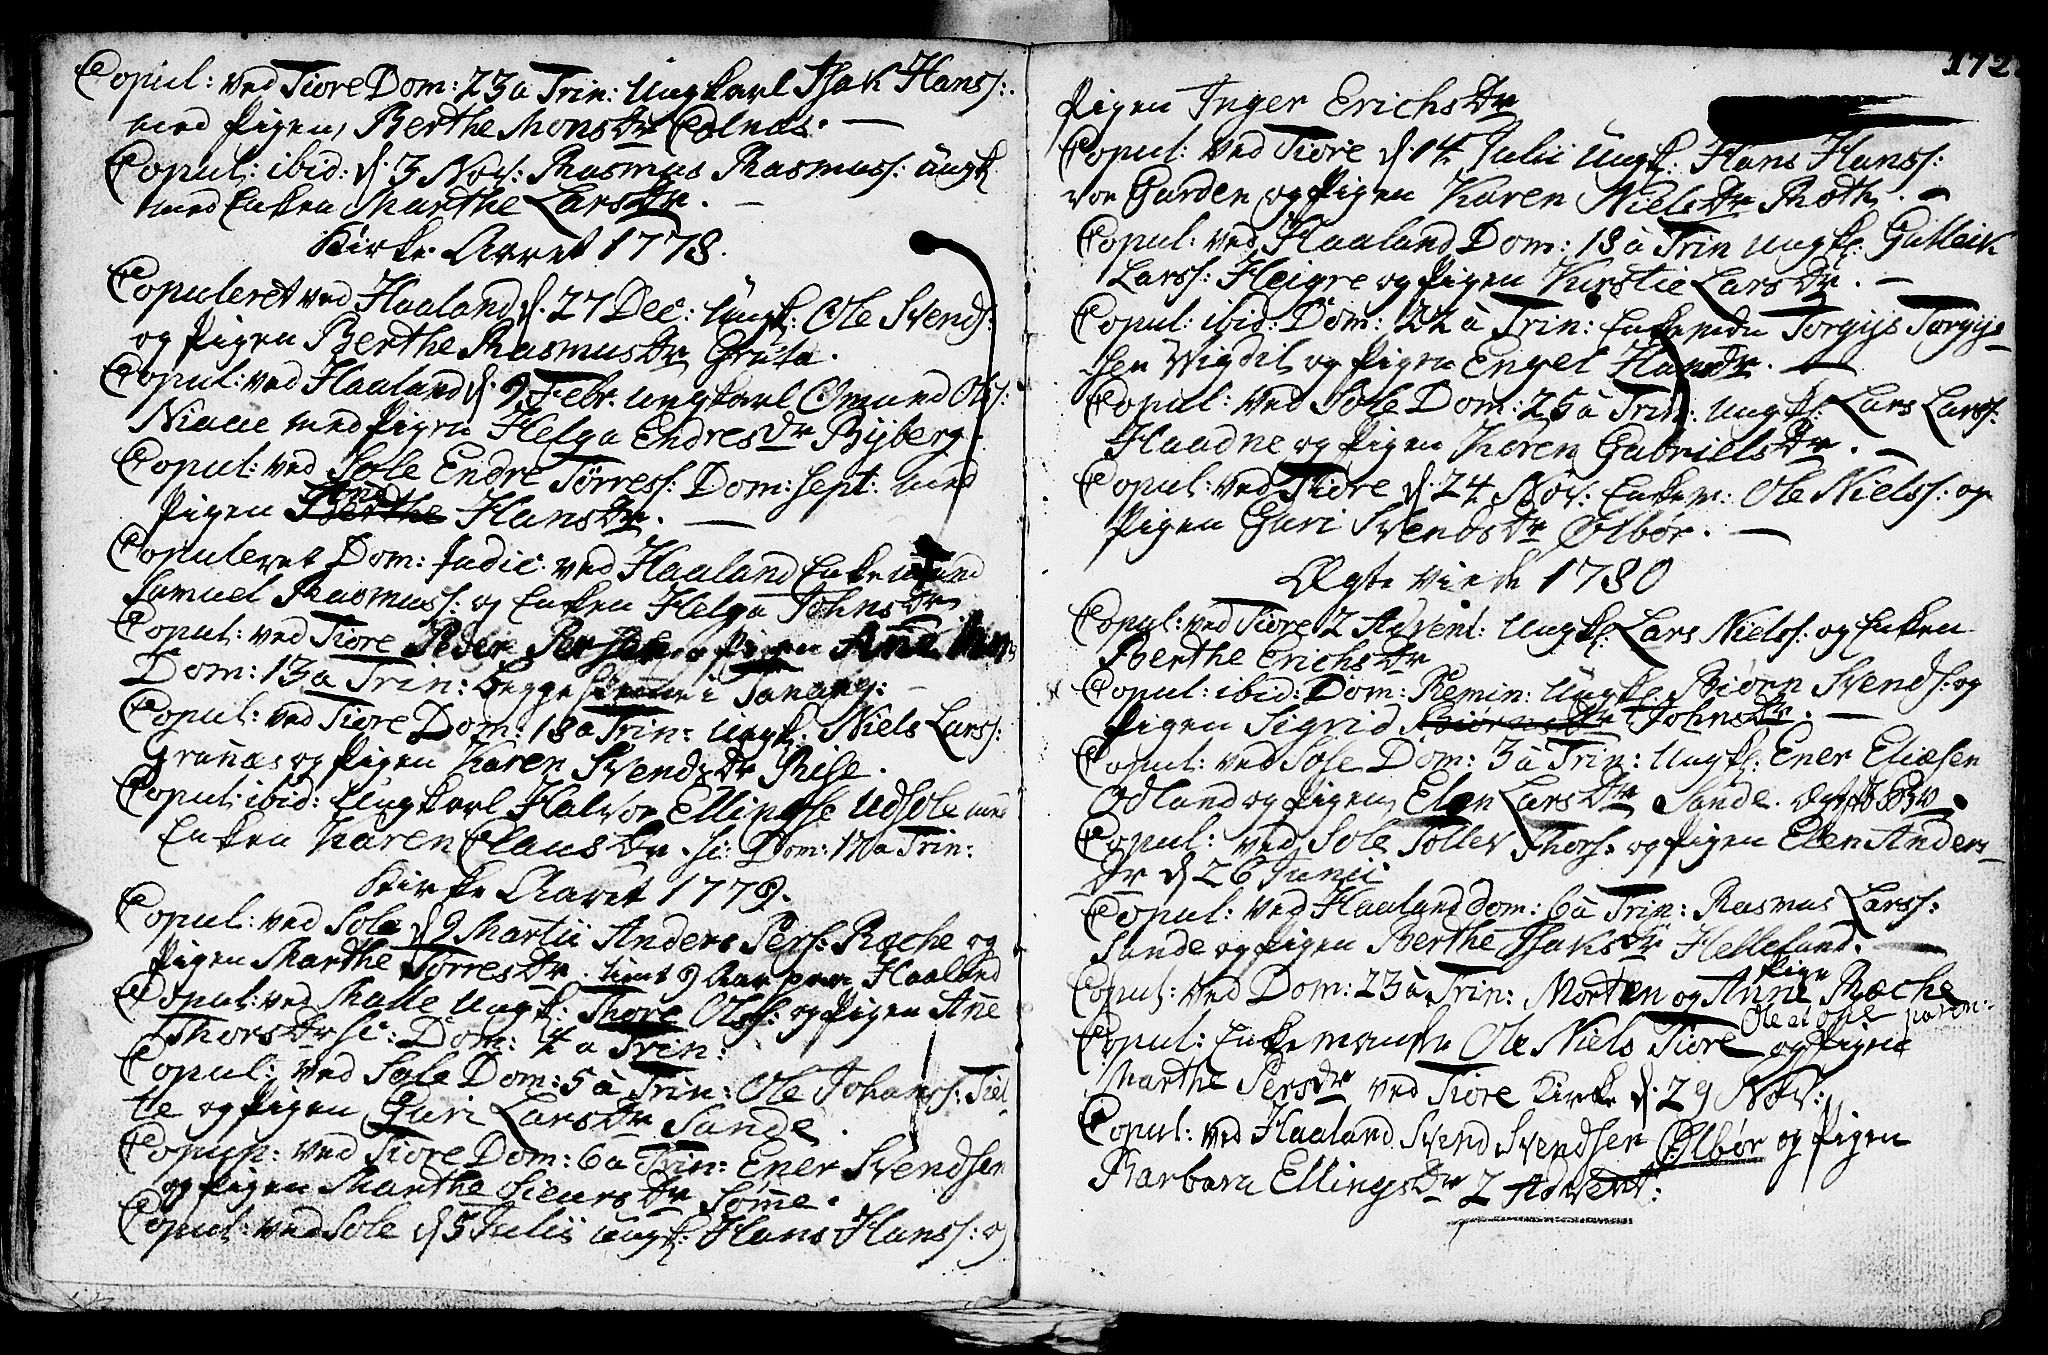 Copul: ved Tiore Dom: 23 à Trin: Ungkarl Isak Hanss:
med Pigen Berthe Monsdr Edlnds.
Copul: ibid: d. 3 Nov: Rasmus Rasmuss: ungk
med Enken Marthe Larsdr.
Kirke Aaret 1778.
Copuleret ved Haaland d. 27 Dec: Ungk: Ole Svends:
og Pigen Berthe Rasmusdr Gruta.
Copul: ved Haaland d. 9 Febr. Ungkarl Omund Ols:
Niaae med Pigen Helga Endresdr Byberg.
Copul: ved Sole Endre Tørress: Dom: Sept: med
Pigen Ane Hansdr.
Copuleret Dom: Judic: ved Haaland Enkemand
Samuel Rasmuss: og Enken Helga Johnsdr
Copul: ved Tiore Peder Persen og Pigen Ane
Dom: 13 à Trin: begge tienne i Tanang:
Copul: ved Tiore Dom: 18 à Trin: Ungk: Niels Larss:
Granæs og Pigen Karen Svendsdr Rise.
Copul: ibid: Ungkarl Halvor Ellingse Udsole med
Enken Karen Clausdr. sc: Dom: 17 à Trin:
Kirke Aaret 1779.
Copul: ved Sole d 9 Martii Anders Pers: Ræche og
Pigen Marthe Torresdr. tient 9 Aar paa Haaland
Copul: ved Malle Ungk: Thore Olss: og Pigen Ane
Thorsdr sc: Dom: 4 à Trin:
Copul: ved Sole Dom: 5 à Trin: Ole Johanss: Tiel-
te og Pigen Guri Larsdr Sande.
Copul: ved Tiore Dom: 6 à Trin: Ener Svendsen
og Pigen Marthe Sieursdr Sømme.
Copul: ved Sole d 5 Julii ungk: Hans Hanss: og
172
Pigen Inger Erichsdr
Copul: ved Tiore d. 14 Julii Ungk: Hans Hanss:
von Garden og Pigen Karen Nielsdr Roth.
Copul: ved Haaland Dom: 18 à Trin Ungk: Gulleik
Larss: Heigre og Pigen Kirstie Larsdr.
Copul: ibid: Dom: 22 à Trin: Enkemdn Torgijs Torgijs-
sen Wigdil og Pigen Engel Hansdr.
Copul: ved Sole Dom: 25 à Trin: Ungk: Lars Larss:
Haadne og Pigen Karen Gabrielsdr.
Copul: ved Tiore d. 24 Nov: Enkem: Ole Nielss: og
Pigen Guri Svendsdr Ølbør.
Ægte viede 1780
Copul: ved Tiore 2 Advent: Ungk: Lars Nielss: og Enken
Berthe Erichsdr
Copul: ibid: Dom: Remin: Ungk: Biørn Svends: og
Pigen Sigrid Biørnsdr Johnsdr.
Copul: ved Sole Dom: 3 à Trin: Ungk: Ener Eliæsen
Odland og Pigen Elen Larsdr Sande.
Copul: ved Sole Tollev Thors: og Pigen Elen Anders-
dr d 26 Junii
Copul: ved Haaland Dom: 6 à Trin: Rasmus Larss:
Sande og Pigen Berthe Isaksdr Helleland.
Copul: ved Dom: 23 à Trin: Morten og Pige Anne Ræche
Copul: Enkemanden Ole Niels Tiore og Pigen
Marthe Persdr ved Tiore Kirke d. 29 Nov:
Copul: ved Haaland Svend Svendsen Ølbør og Pigen
Barbara Ellingsdr 2 Advent: